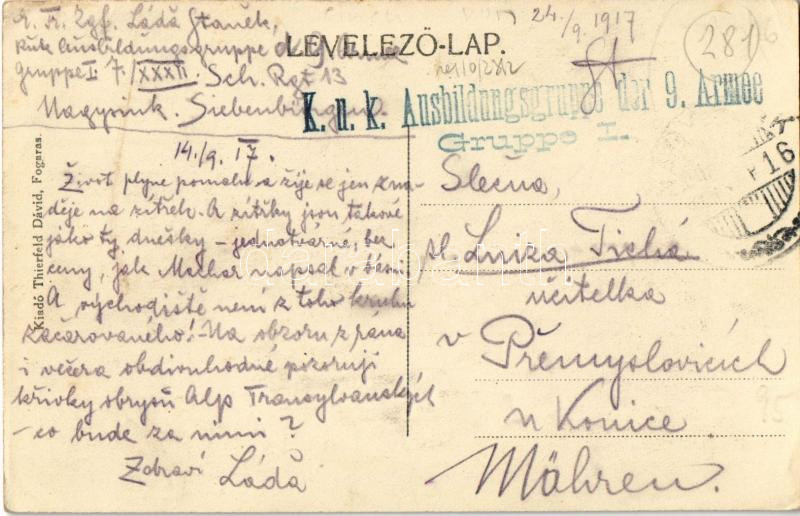 E. Fr. Zgf. Láďa Staněk,
kuk Ausbildungsgruppe d. 9. Armee
Gruppe I. 7/XXXII. Sch. Rgt 13
Nagysink. Siebenbürgen.
LEVELEZŐ-LAP.
24./9. 1917
281
K. u. k. Ausbildungsgruppe der 9. Armee
Gruppe I.
16
14./9. 17.
Život plyne pomalu a žije se jen z na-
děje na zítřek. A zítřky jsou takové
jako ty dnešky – jednotvárné, bez
ceny, jak Machar napsal v básni
A východiště není z toho kruhu
začarovaného! – Na obzoru z rána
i večera obdivuhodně pozoruji
křivky obrysů Alp Transylvanských
– co bude za nimi?
Zdraví Láďa
Slečna,
sl. Luiza Tichá
učitelka
v Přemyslovicích
u Konice
Mähren.
95
Kiadó Thierfeld Dávid, Fogaras.
darabanth